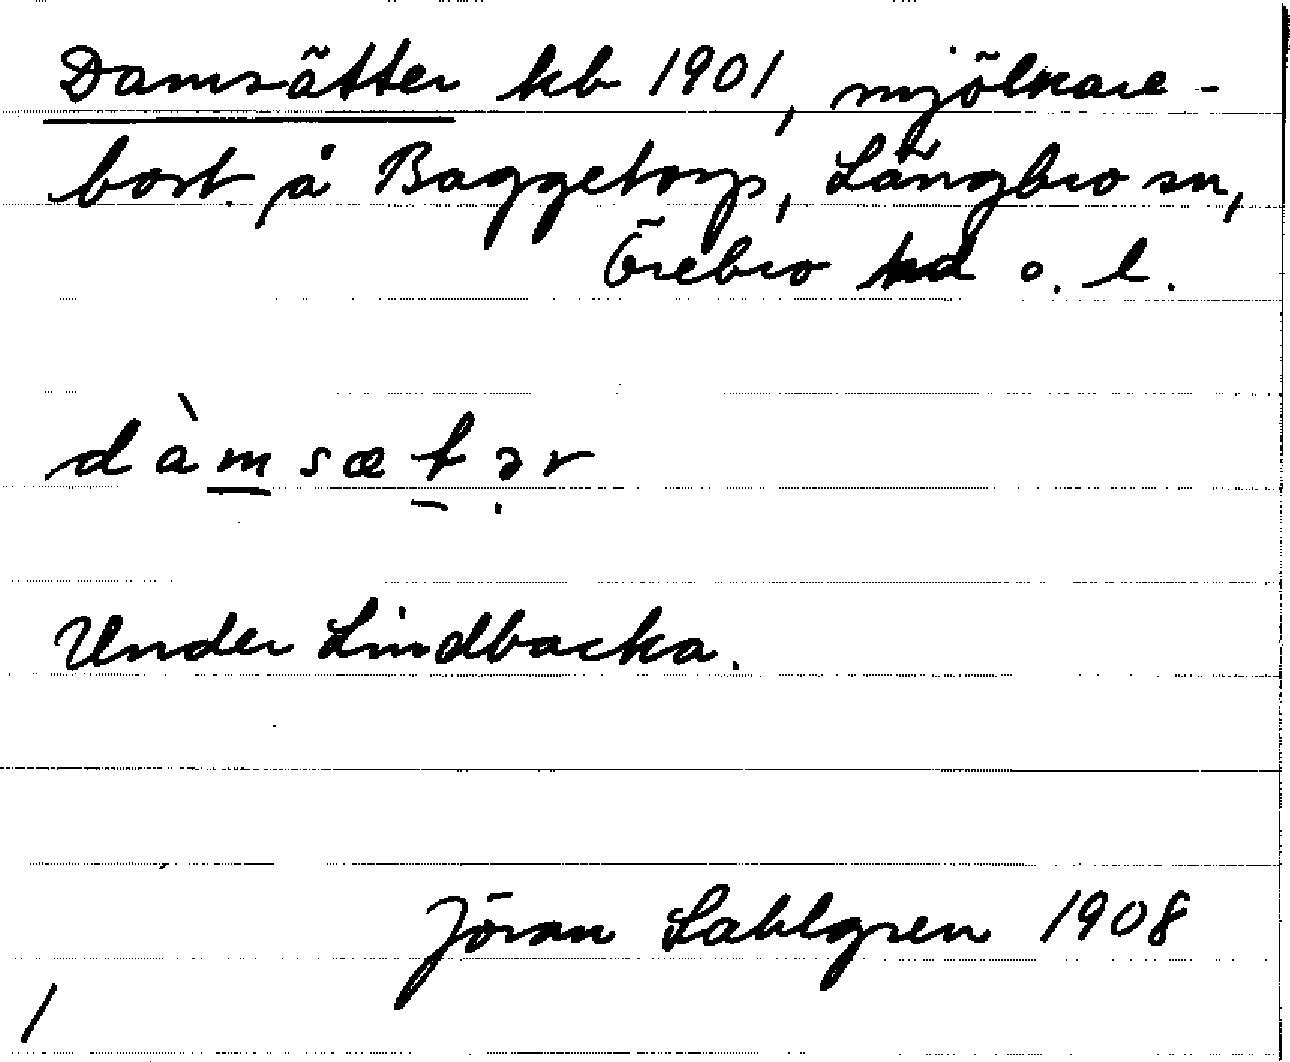 Damsätter kb 1901, mjölkare-
bost. å Baggetorp, Långbro sn,
Örebro hd o. l.
dàmsætər
Under Lindbacka.
Jöran Sahlgren 1908
1